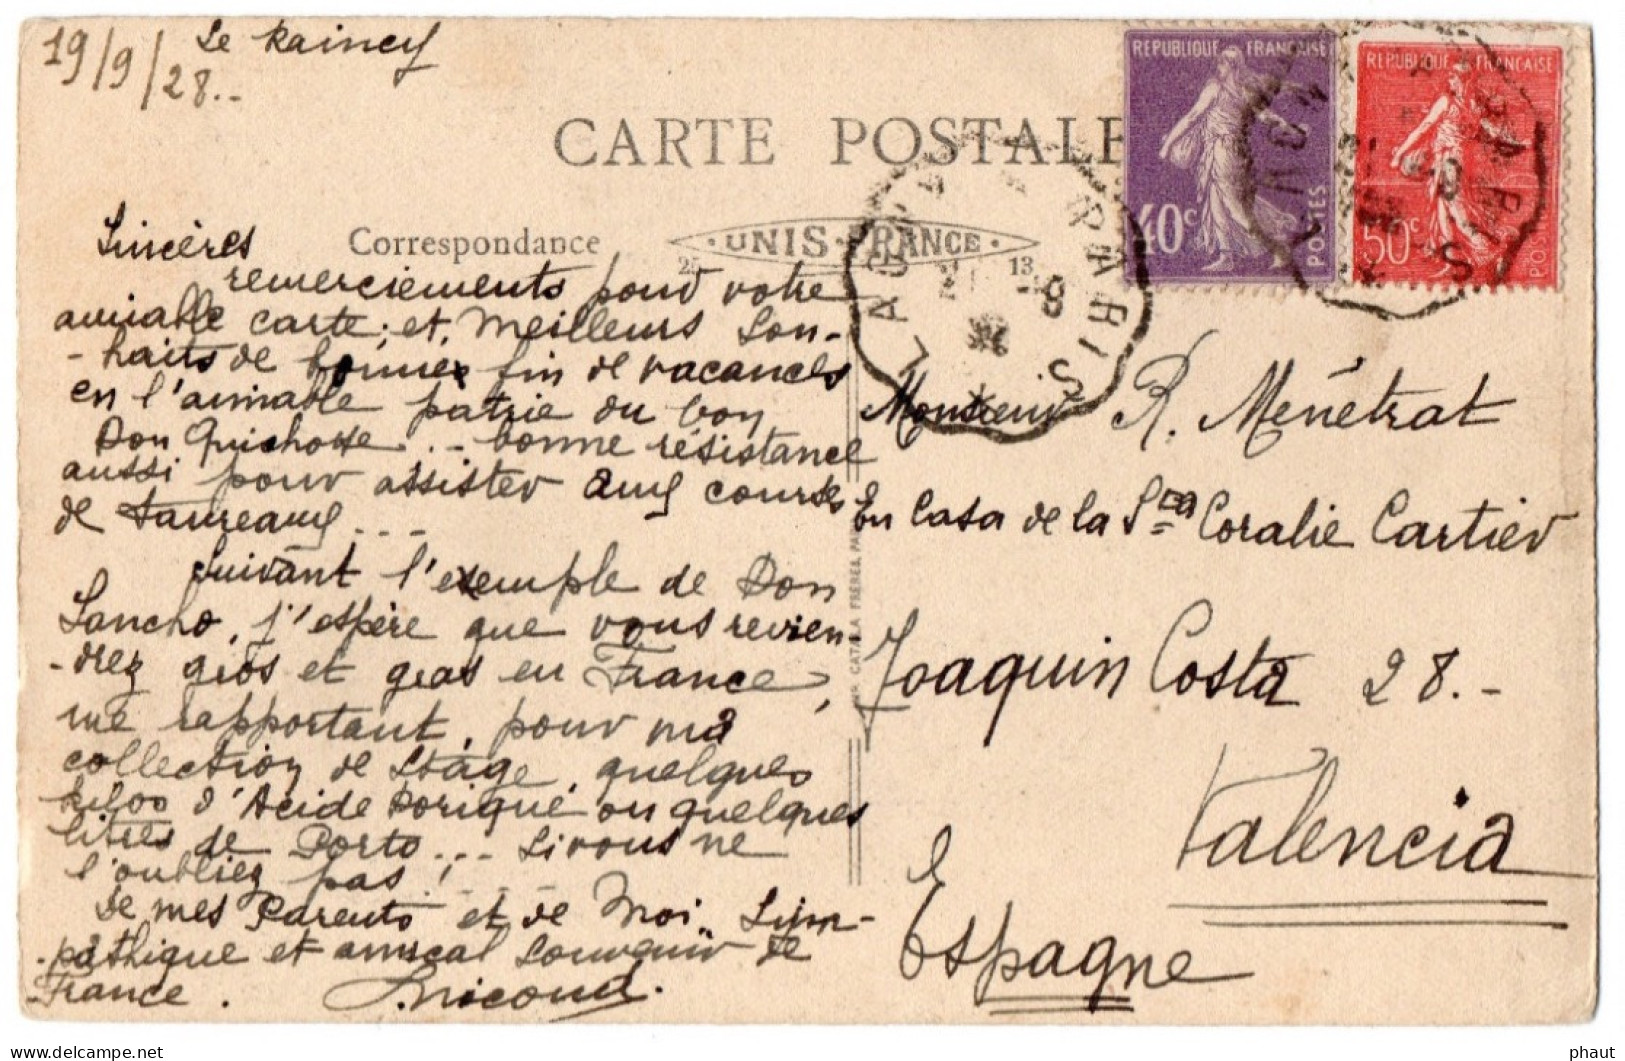 19/9/28..
Le Raincy
CARTE POSTALE
REPUBLIQUE FRANÇAISE
40c
POSTES
REPUBLIQUE FRANÇAISE
50c
Correspondance
UNIS FRANCE
25
13
PARIS
Sincères
remerciements pour votre
aimable carte; et, meilleurs Sou-
-haits de bonne fin de vacances
en l'aimable patrie du bon
Don Quichotte... bonne résistance
aussi pour assister aux courses
de taureaux...
Suivant l'exemple de Don
Sancho, j'espère que vous revien-
-drez gros et gras en France,
me rapportant, pour ma
collection de Stage, quelques
kilos d'Acide borique ou quelques
litres de Porto... Si vous ne
l'oubliez pas!...
De mes Parents et de Moi, Sym-
-pathique et amical Souvenir de
France.
Monsieur R. Menétrat
En Casa de la Sra Coralie Cartier
Joaquin Costa 28.-
Valencia
Espagne
phaut
delcampe.net